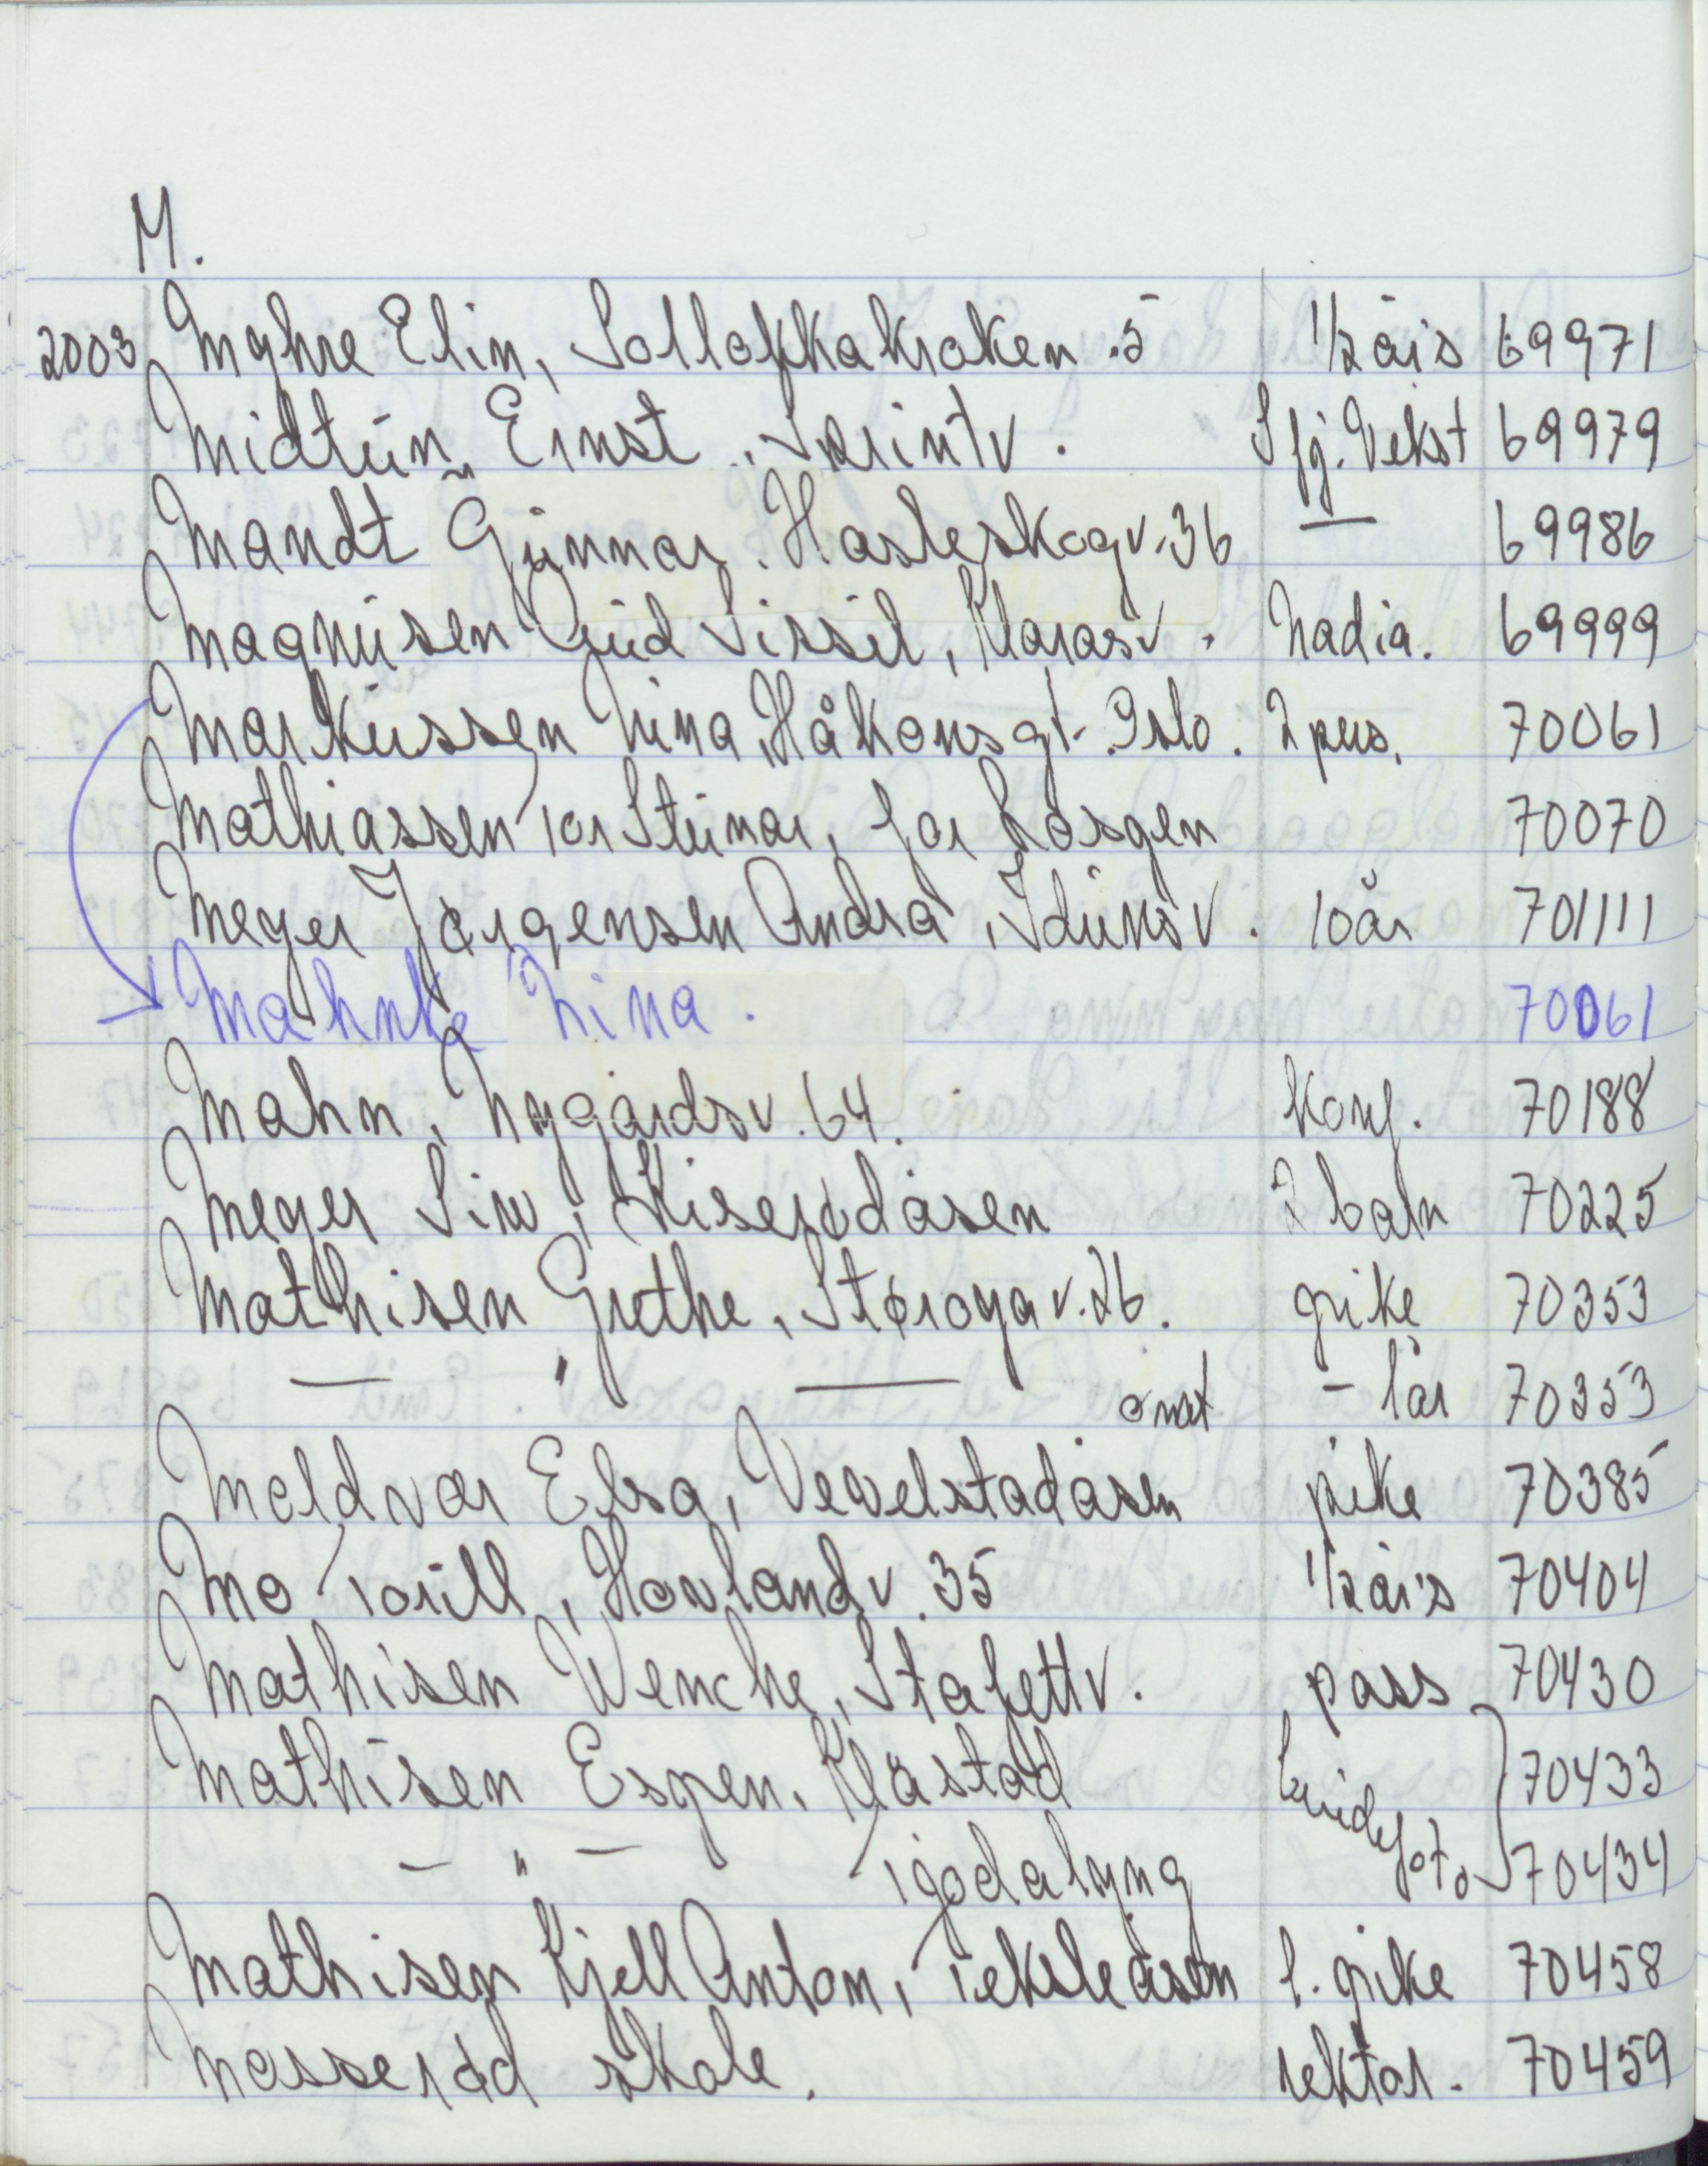 M.
2003 Myhre Elin, Solløkkakroken 5 1/2 års 69971
Midtun Ernst, Skrintv. Sfj. Vekst 69979
Mandt Gunnar. Hasleskogv. 36 — 69986
Magnusen Gud Sissel, Klarasv. Nadia. 69999
Markussen Nina, Håkonsgt. Oslo. 2 pers. 70061
Mathiassen Tor Steinar, Jar Løsgen 70070
Meyer Jørgensen Andrå, Idunsv. 10 år 701111
Mahnke Nina. 70061
Mahn, Nygårdsv. 64. Konf. 70188
Meyer Siw, Kiserødåsen 2 barn 70225
Mathisen Grethe, Storøyav. 26. pike 70353
— " — omat - 1 år 70353
Moldvær Elsa, Vevelstadåsen pike 70385
Mo Torill, Hovlandv. 35 1/2 års 70404
Mathisen Wenche, Stafettv. pass 70430
Mathisen Espen, Klåstad brudefoto 70433
— " — Tjødalyng 70434
Mathisen Kjell Anton, Teksleåsen 1. pike 70458
Mosserød skole. rektor. 70459